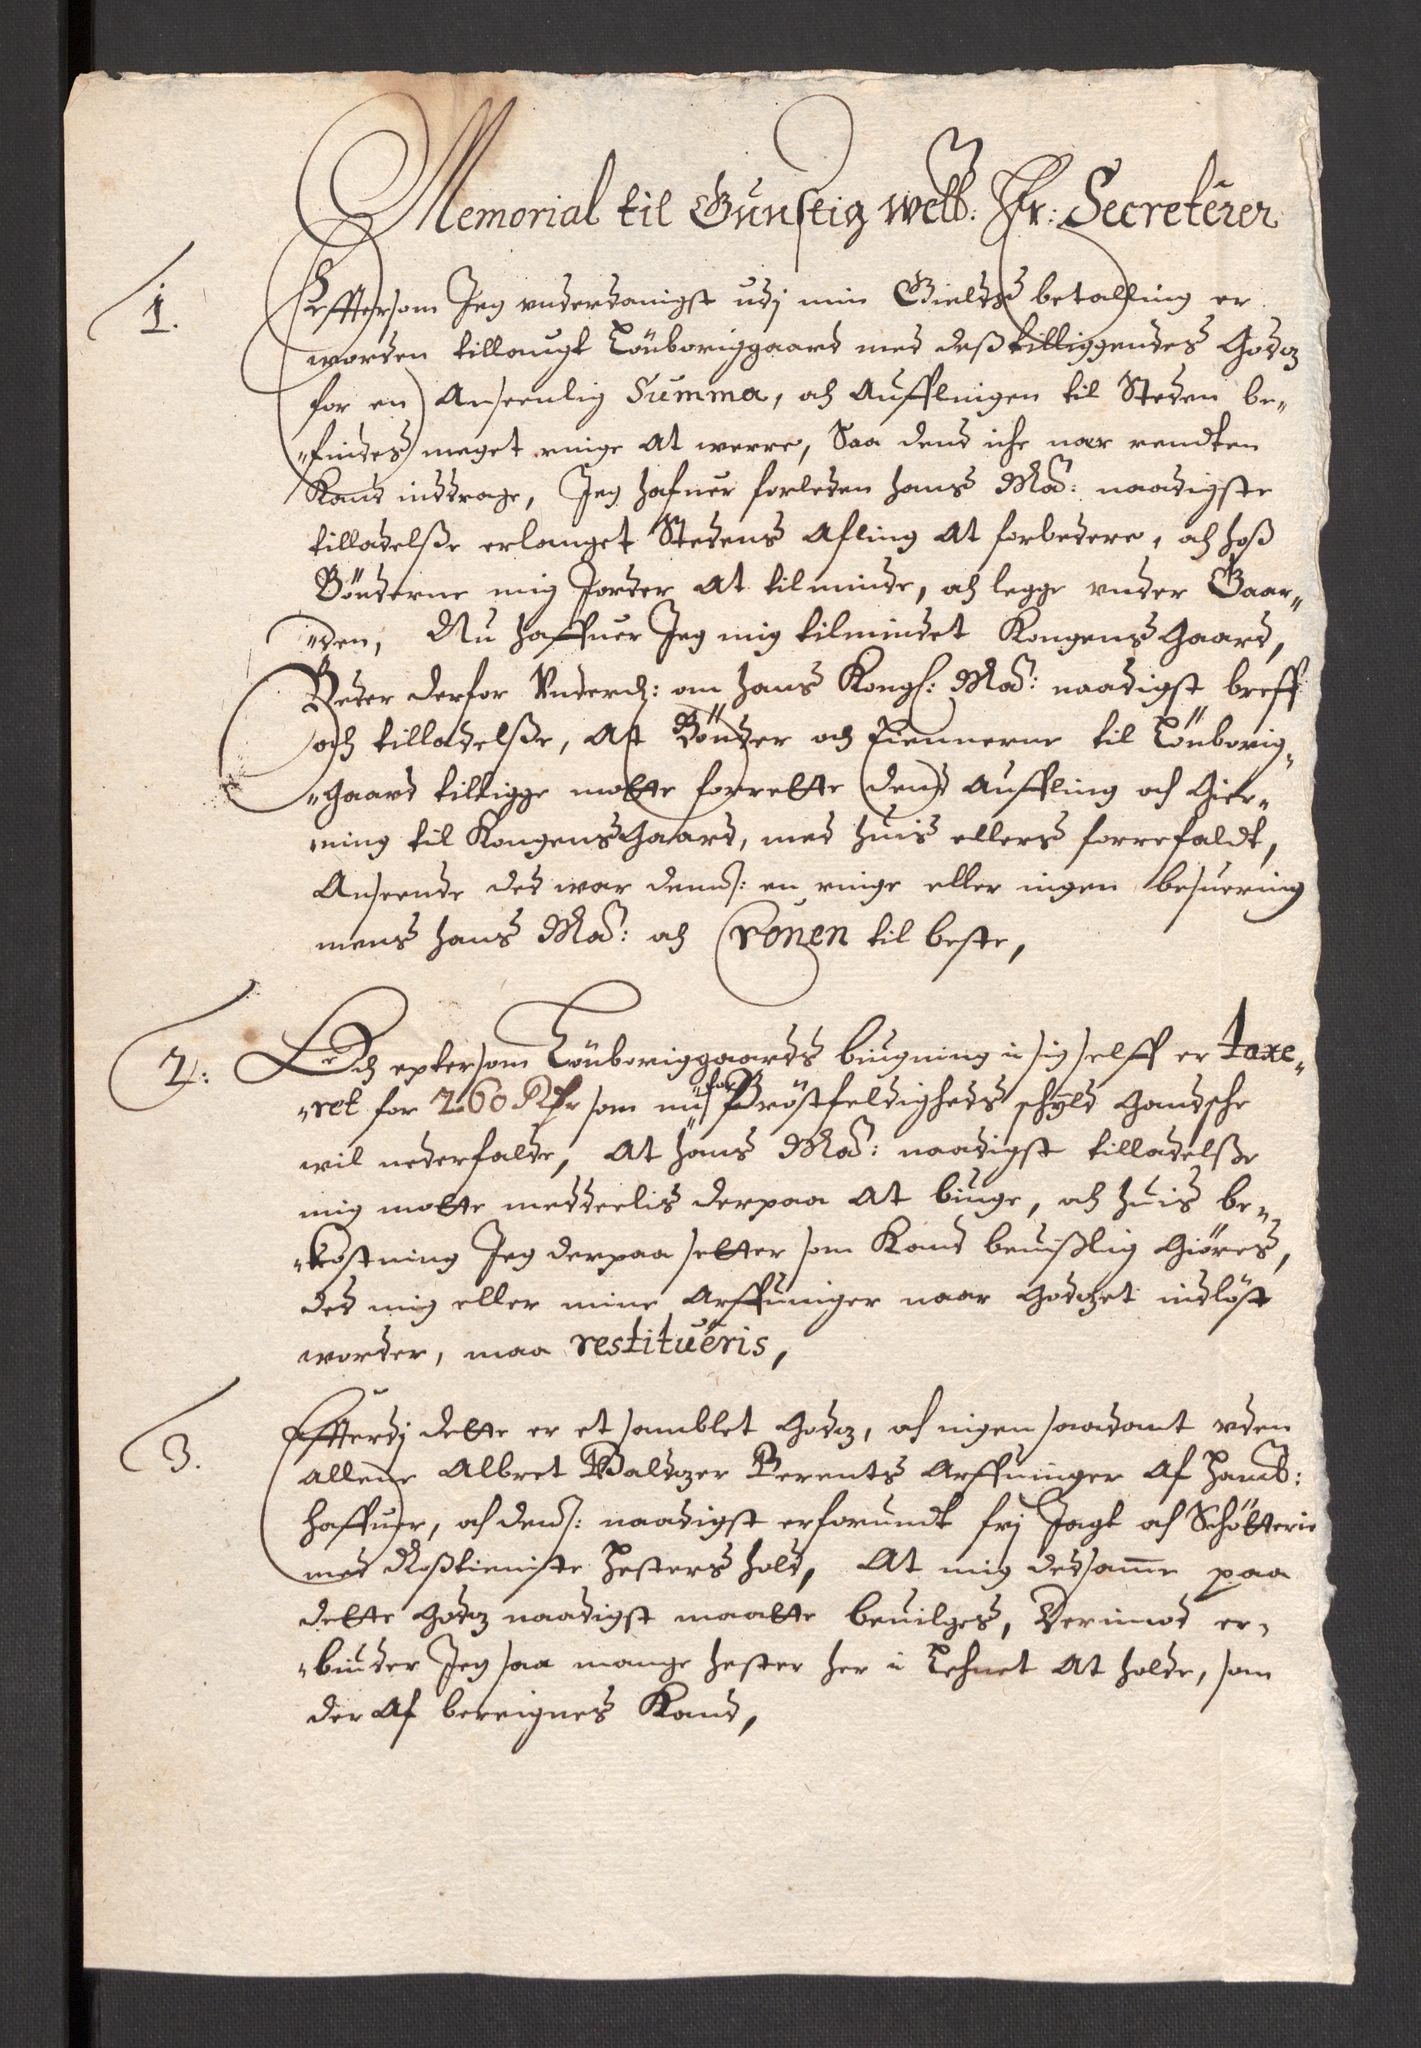 Memorial til Gunstig Welb: Hr: Secreterer
1.
Effttersom Jeg vnderdanigst udj min Gields betalling er
worden tillaugt Töuboriggaard med deß tilliggendes Godz
for en Anseenlig Summa, och Aufflingen til Steden be-
findes meget ringe At werre, Saa dend iche nar rendten
Kand inddrage, Jeg hafuer forleden hans May: naadigste
tilladelße erlanget Stedens Afling At forbedere, och hoß
Bönderne mig Jorder At tilminde, och legge vnder Gaar-
den, Nu haffuer Jeg mig tilmindet Kongens Gaard,
Beder derfor Vnderd: om hans Kongl: May: naadigst breff
och tilladelße, At Bönder och Tiennerne til Töuborig-
gaard tilligge motte forrette dend Auffling och Gier-
ning til Kongens Gaard, med huis ellers forrefaldt,
Anseende det war dennß: en ringe eller ingen besuering
mens hans May: och Cronen til beste,
2: Och epter som Töuboriggaards biugning i sig selff er taxe-
ret for 260 Rdr som nu for Bröstfeldigheds schyld gandsche
wil nederfalde, At hans May: naadigst tilladelße
mig motte meddeelis derpaa At biuge, och huis be-
kostning Jeg derpaa setter som Kand beuißlig Giöres,
det mig eller mine Arffuinger naar Godzet indlöst
worder, maa restitueris,
3. Effterdj dette er et samblet Godz, och ingen saadant vden
allene Albret Baltzer Berents Arffuinger Af Hamb:
haffuer, och denß: naadigst erforundt frj Jagt och Schötterie
med Roßtieniste Hesters hold, At mig det samme paa
dette Godz naadigst maatte beuilges, Derimod er-
biuder Jeg saa mange hester her i Lehnet At holde, som
der Af beregnes Kand,